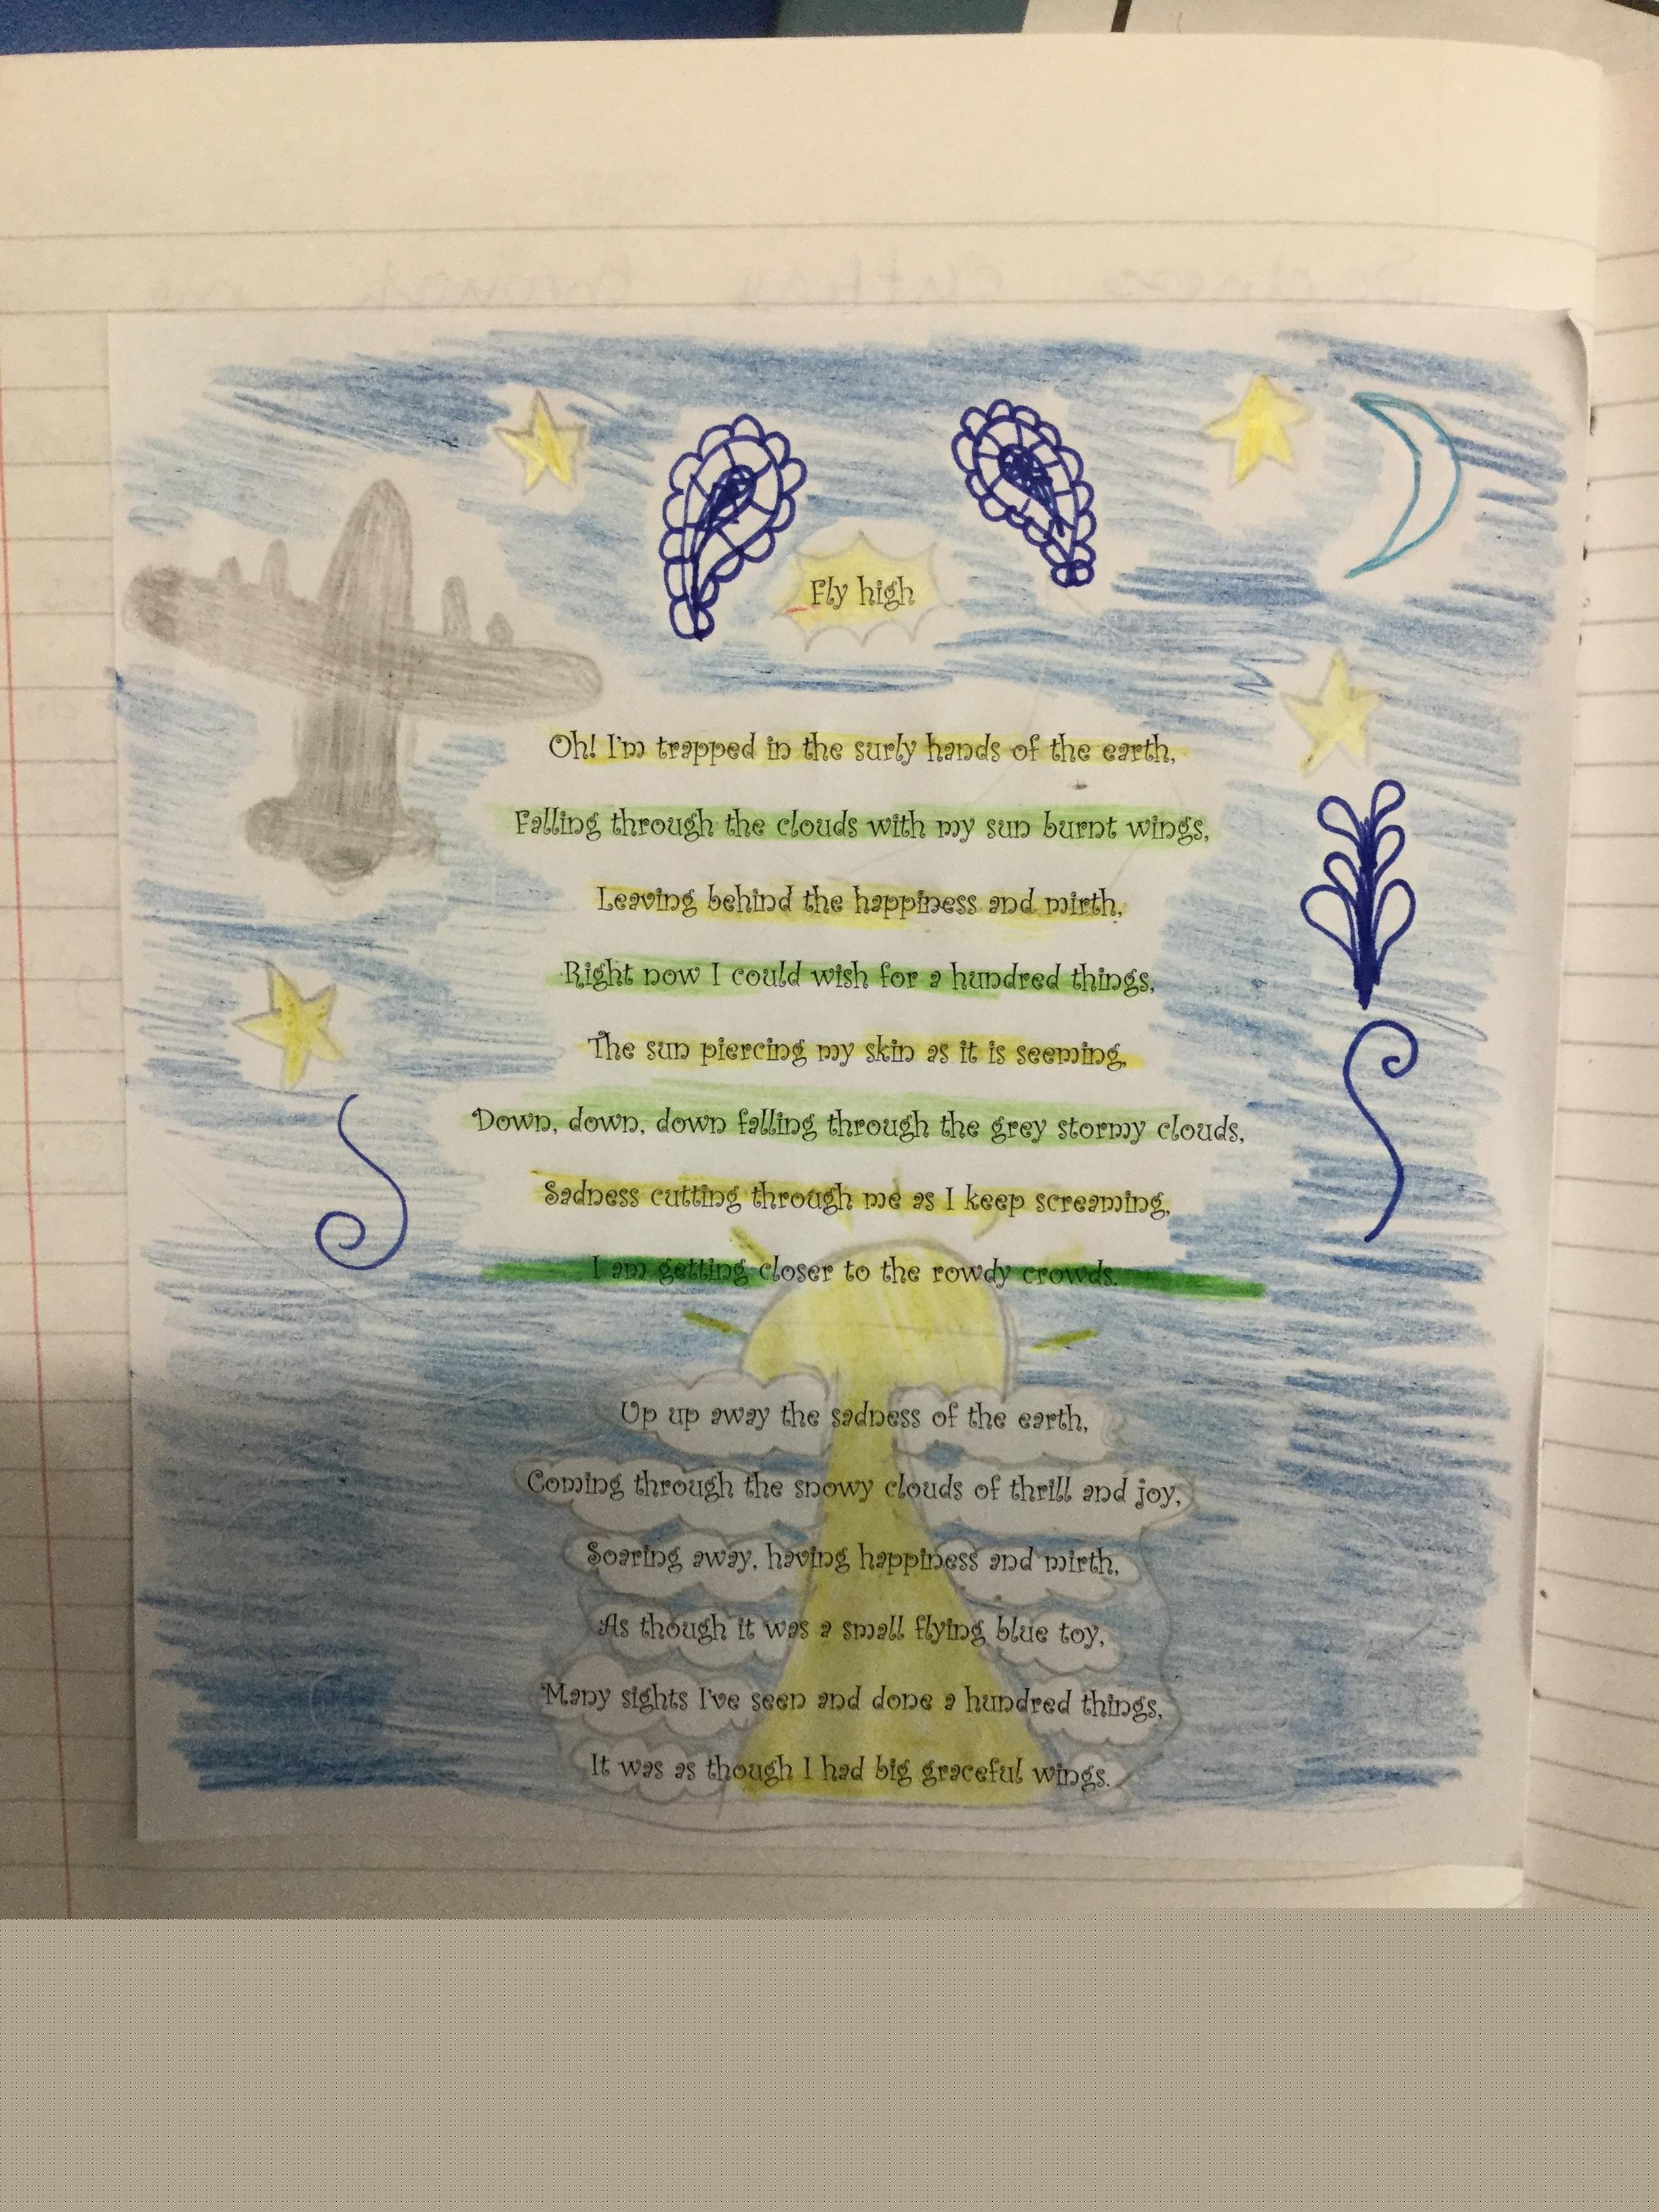 Fly high
Oh! I'm trapped in the surly hands of the earth,
Falling through the clouds with my sun burnt wings,
Leaving behind the happiness and mirth,
Right now I could wish for a hundred things,
The sun piercing my skin as it is seeming,
Down, down, down falling through the grey stormy clouds,
Sadness cutting through me as I keep screaming,
I am getting closer to the rowdy crowds.
Up up away the sadness of the earth,
Coming through the snowy clouds of thrill and joy,
Soaring away, having happiness and mirth,
As though it was a small flying blue toy,
Many sights I've seen and done a hundred things,
It was as though I had big graceful wings.